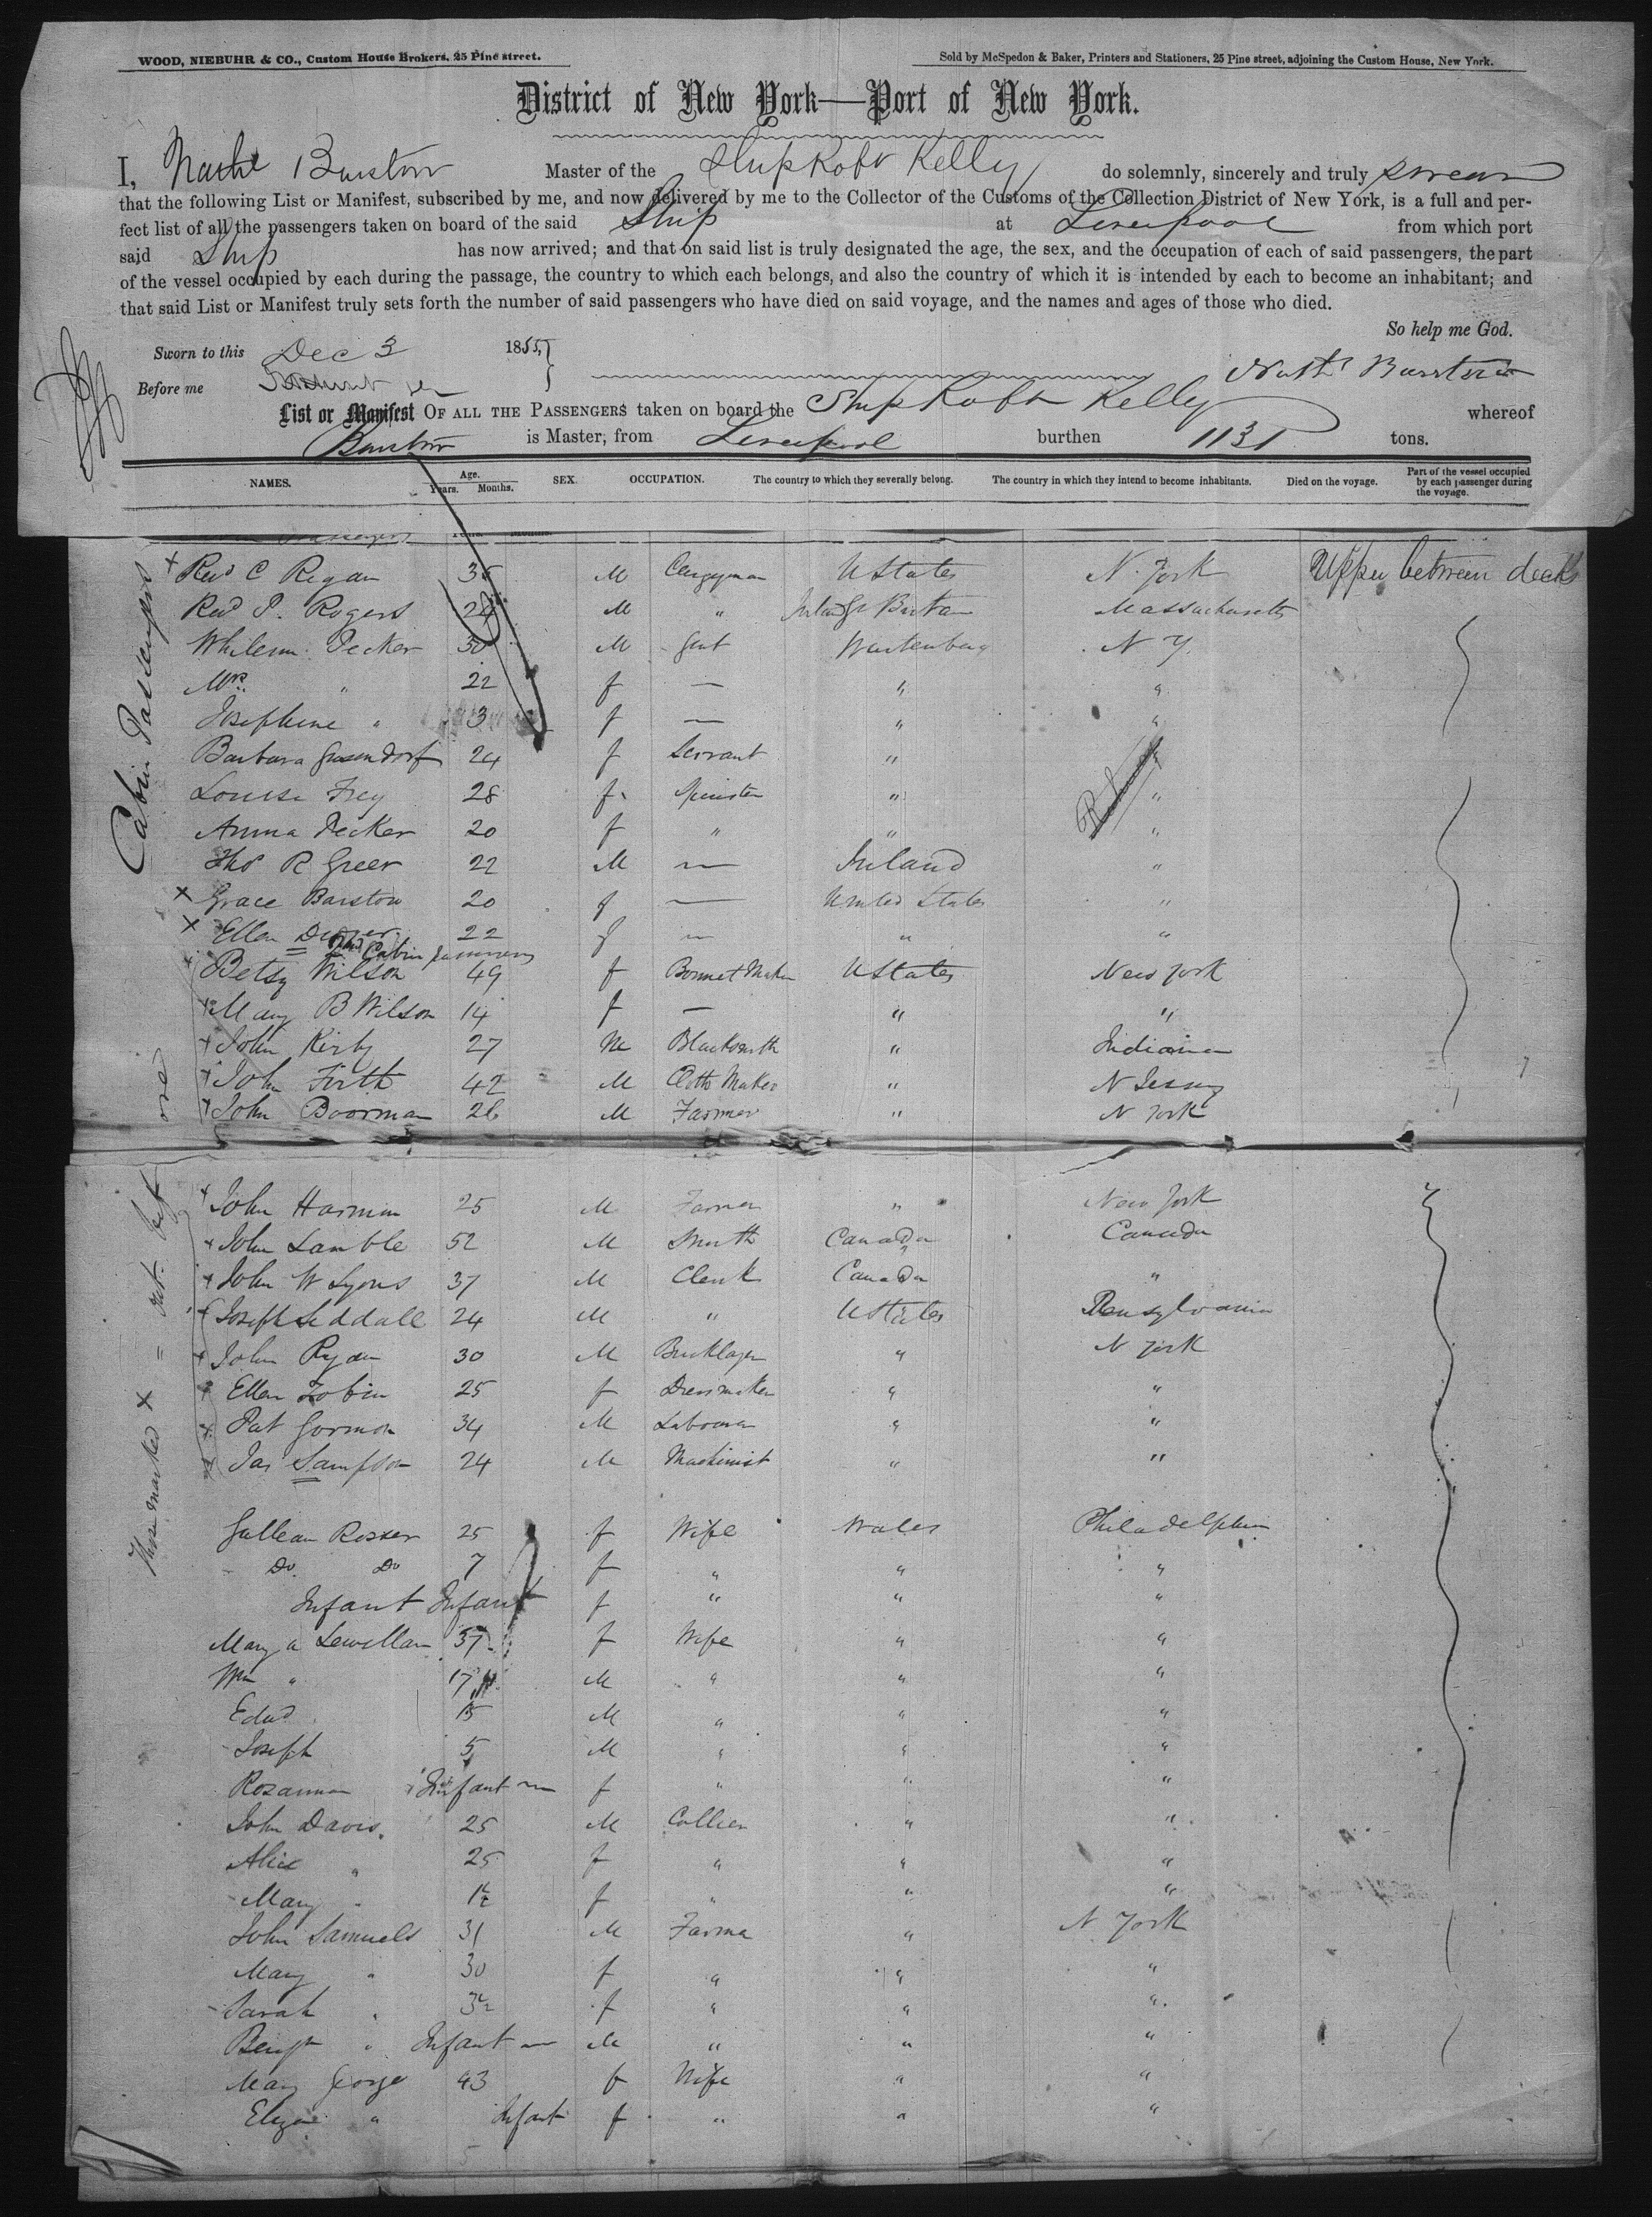 WOOD, NIEBUHR & CO., Custom House Brokers, 25 Pine street.
Sold by McSpedon & Baker, Printers and Stationers, 25 Pine street, adjoining the Custom House, New York.
District of New York—Port of New York.
I, Nathl Barstow Master of the Ship Robt Kelly do solemnly, sincerely and truly swear
that the following List or Manifest, subscribed by me, and now delivered by me to the Collector of the Customs of the Collection District of New York, is a full and per-
fect list of all the passengers taken on board of the said Ship at Liverpool from which port
said Ship has now arrived; and that on said list is truly designated the age, the sex, and the occupation of each of said passengers, the part
of the vessel occupied by each during the passage, the country to which each belongs, and also the country of which it is intended by each to become an inhabitant; and
that said List or Manifest truly sets forth the number of said passengers who have died on said voyage, and the names and ages of those who died.
So help me God.
Sworn to this Dec 3 1855,
Before me
Nathl Barstow
List or Manifest OF ALL THE PASSENGERS taken on board the Ship Robt Kelly whereof
Barstow is Master, from Liverpool burthen 1131 tons.
NAMES. Age. Years. Months. SEX. OCCUPATION. The country to which they severally belong. The country in which they intend to become inhabitants. Died on the voyage. Part of the vessel occupied by each passenger during the voyage.
Cabin Passengers
x Revd C Rigan 35 M Clergyman U States N. York Upper between decks
Revd P. Rogers 24 M " Gr Britain Massachusetts
Whilem Pecker 30 M Gent Wurtenburg N Y.
Mrs " 22 f — " "
Josephine " 3 f — " "
Barbara 24 f Servant "
Louisa Frey 28 f Spinster " "
Anna Pecker 20 f " " "
Thos R Greer 22 M — Ireland "
x Grace Barstow 20 f — United States "
x Ellen 22 f — " "
2nd Cabin Passengers
x Betsy Wilson 49 f Bonnet Maker U States New York
x Mary B Wilson 14 f — " "
x John Kirby 27 M Blacksmith " Indiana
x John Firth 42 M Cloth Maker " N Jersey
x John Boorman 26 M Farmer " N York
x John Harmin 25 M Farmer " New York
x John Lamble 52 M Smith Canada Canada
x John W Lyons 37 M Clerk Canada "
x Joseph Leddall 24 M " U States Pensylvania
x John Ryan 30 M Bricklayer " N York
x Ellen Tobin 25 f Dressmaker " "
x Pat Gorman 34 M Labourer " "
x Jas Sampson 24 M Machinist " "
Those marked x =
Gullean Rosser 25 f Wife Wales Philadelphia
Do Do 7 f " " "
Infant Infant f " " "
Mary a Lewellan 37 f Wife " "
Wm " 17 M " " "
Edwd 15 M " " "
Joseph 5 M " " "
Rosanna Infant f " " "
John Davis 25 M Collier " "
Alice " 25 f " " "
Mary " 1½ f " " "
John Samuels 31 M Farmer " N York
Mary " 30 f " " "
Sarah " 3½ f " " "
Benjn " Infant M " " "
Mary George 43 f Wife " "
Eliza " Infant f " " "